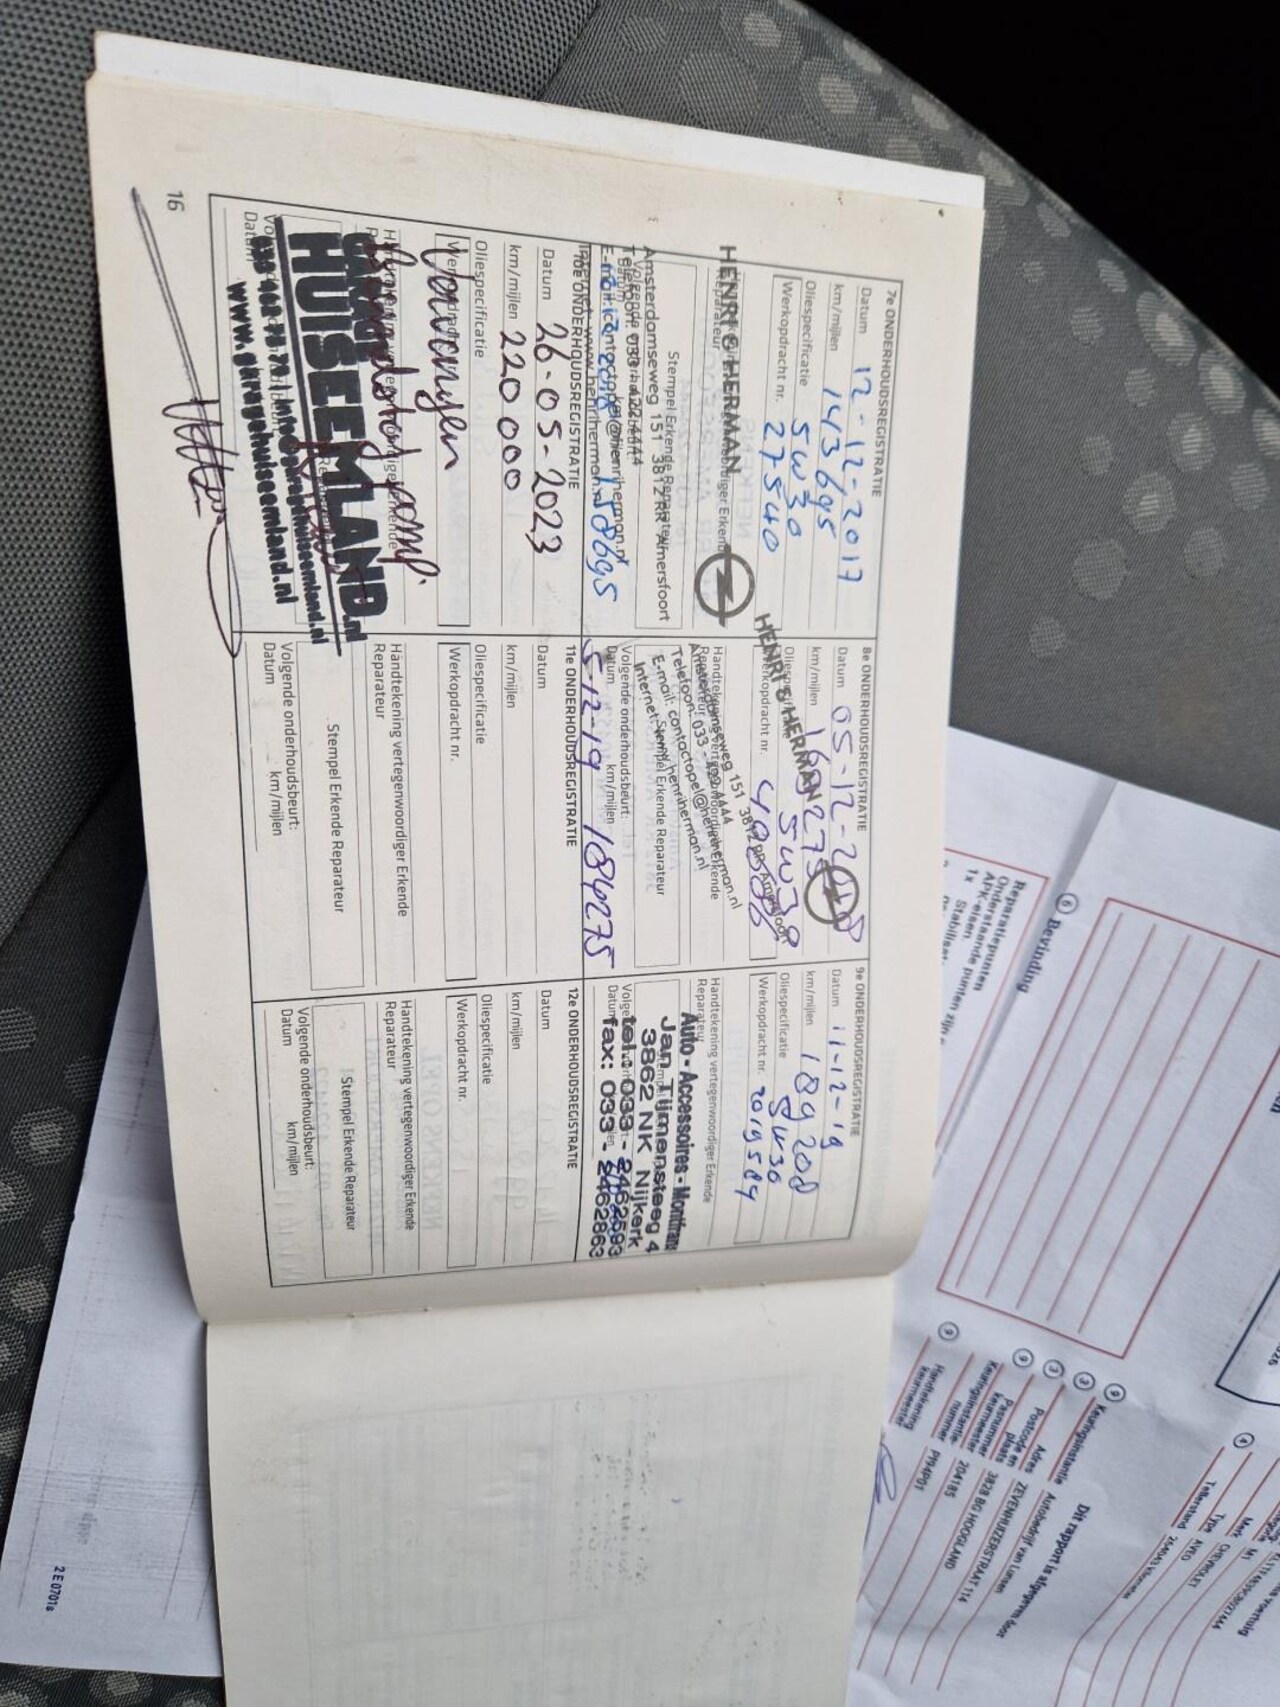 7e ONDERHOUDSREGISTRATIE
Datum 12-12-2017
km/mijlen 143695
Oliespecificatie 5w30
Werkopdracht nr. 27540
HENRI & HERMAN
Reparateur
Stempel Erkende Reparateur
Amsterdamseweg 151 3812 RR Amersfoort
Telefoon: 033 - 422 4444
E-mail: contactopel@henriherman.nl
158695
8e ONDERHOUDSREGISTRATIE
Datum 05-12-2018
km/mijlen 169275
Oliespecificatie 5w30
Werkopdracht nr.
HENRI & HERMAN
Handtekening vertegenwoordiger Erkende
Reparateur
Amsterdamseweg 151 3812 RR Amersfoort
Telefoon: 033 - 422 4444
E-mail: contactopel@henriherman.nl
Internet: www.henriherman.nl
Stempel Erkende Reparateur
Volgende onderhoudsbeurt:
Datum km/mijlen
5-12-19 184275
9e ONDERHOUDSREGISTRATIE
Datum 11-12-19
km/mijlen 189208
Oliespecificatie 5w30
Werkopdracht nr. 2019584
Handtekening vertegenwoordiger Erkende
Reparateur
Auto - Accessoires - Montfrans
Jan Tijmensteeg 4
3862 NK Nijkerk
tel.: 033 - 2462593
fax: 033 - 2462863
10e ONDERHOUDSREGISTRATIE
Datum 26-05-2023
km/mijlen 220 000
Oliespecificatie
Werkopdracht nr.
Vervangen
GARAGE
HUISEEMLAND.nl
www.garagehuiseemland.nl
11e ONDERHOUDSREGISTRATIE
Datum
km/mijlen
Oliespecificatie
Werkopdracht nr.
Handtekening vertegenwoordiger Erkende
Reparateur
Stempel Erkende Reparateur
Volgende onderhoudsbeurt:
Datum km/mijlen
12e ONDERHOUDSREGISTRATIE
Datum
km/mijlen
Oliespecificatie
Werkopdracht nr.
Handtekening vertegenwoordiger Erkende
Reparateur
Stempel Erkende Reparateur
Volgende onderhoudsbeurt:
Datum km/mijlen
16
6 Bevinding
Reparatiepunten
Onderstaande punten zijn
APK-eisen.
1x
Merk CHEVROLET
Type AVEO
Tellerstand
Dit rapport is afgegeven door
Keuringsinstantie Autobedrijf van Linten
Adres ZEVENHUIZERSTRAAT 114
Postcode en plaats 3828 BG HOOGLAND
Pasnummer keurmeester 204185
Keuringsinstantie-nummer
Handtekening keurmeester
2 E 0701a